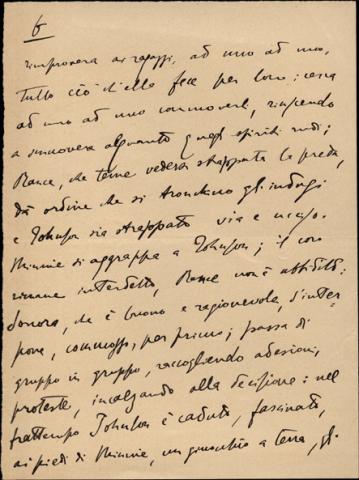 6
rimprovera ai ragazzi, ad uno ad uno,
tutto ciò ch'ella fece per loro; cerca
ad uno ad uno commoverli, riuscendo
a smuovere alquanto quegli spiriti rudi;
Rance, che teme vedersi strappata la preda,
dà ordine che si tronchino gl'indugi
e Johnson sia strappato via e ucciso.
Minnie si aggrappa a Johnson; il coro
rimane interdetto, Rance non è obbedito;
Sonora, che è buono e ragionevole, s'inter-
pone, commosso, per primo; passa di
gruppo in gruppo, raccogliendo adesioni,
proteste, incalzando alla decisione: nel
frattempo Johnson è caduto, fascinato,
ai piedi di Minnie, un ginocchio a terra, gli